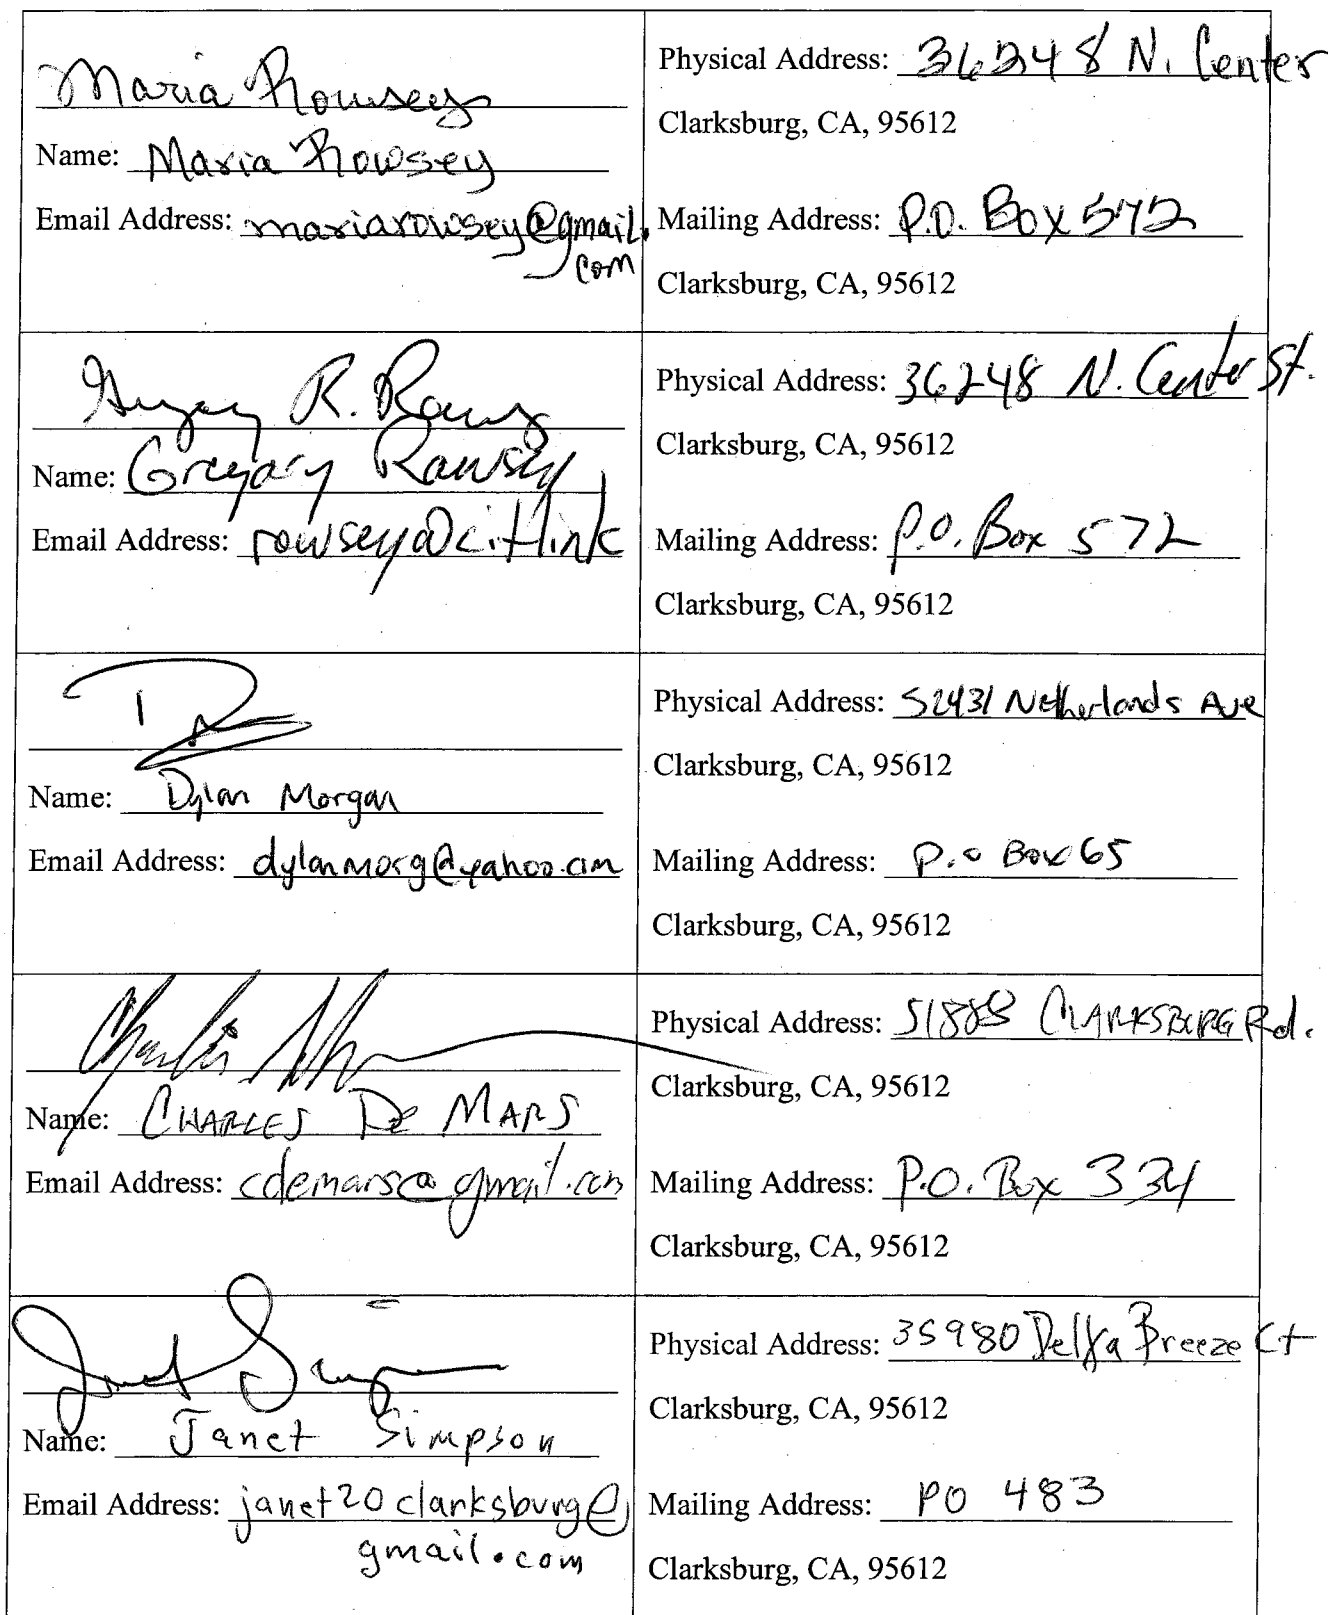 Maria Rowsey
Name: Maria Rowsey
Email Address: mariarowsey@gmail.
com
Physical Address: 36248 N. Center
Clarksburg, CA, 95612
Mailing Address: P.O. Box 572
Clarksburg, CA, 95612
Gregory R. Rowsey
Name: Gregory Rowsey
Email Address: rowsey@citlink
Physical Address: 36248 N. Center St.
Clarksburg, CA, 95612
Mailing Address: P.O. Box 572
Clarksburg, CA, 95612
Name: Dylan Morgan
Email Address: dylanmorg@yahoo.com
Physical Address: 52431 Netherlands Ave
Clarksburg, CA, 95612
Mailing Address: P.O Box 65
Clarksburg, CA, 95612
Name: CHARLES De MARS
Email Address: cdemars@gmail.com
Physical Address: 51888 CLARKSBURG Rd.
Clarksburg, CA, 95612
Mailing Address: P.O. Box 334
Clarksburg, CA, 95612
Janet Simpson
Name: Janet Simpson
Email Address: janet20clarksburg@
gmail.com
Physical Address: 35980 Delta Breeze Ct
Clarksburg, CA, 95612
Mailing Address: PO 483
Clarksburg, CA, 95612